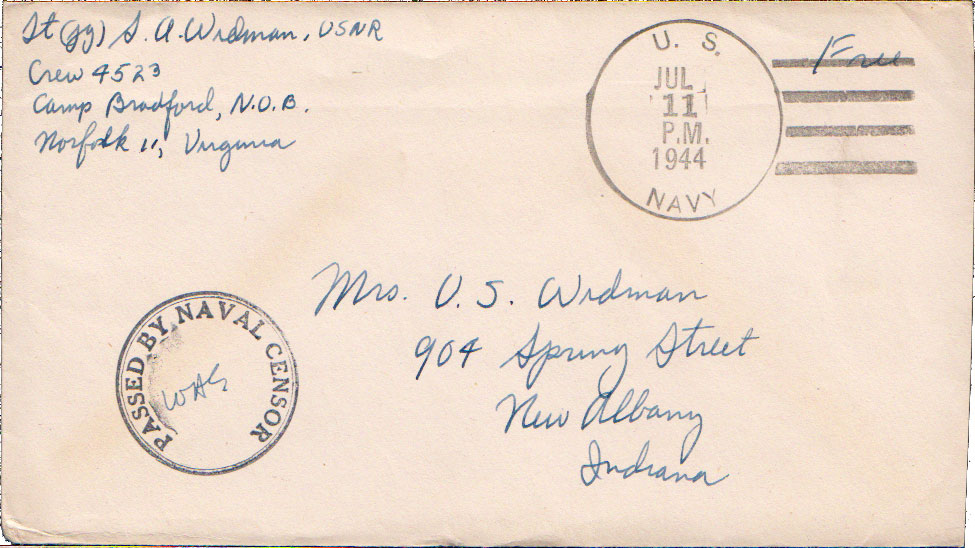 Lt (jg) S. A. Widman, USNR
Crew 4523
Camp Bradford, N.O.B.
Norfolk 11, Virginia
U. S.
JUL
11
P.M.
1944
NAVY
Free
PASSED BY NAVAL CENSOR
WAG
Mrs. V. S. Widman
904 Spring Street
New Albany
Indiana